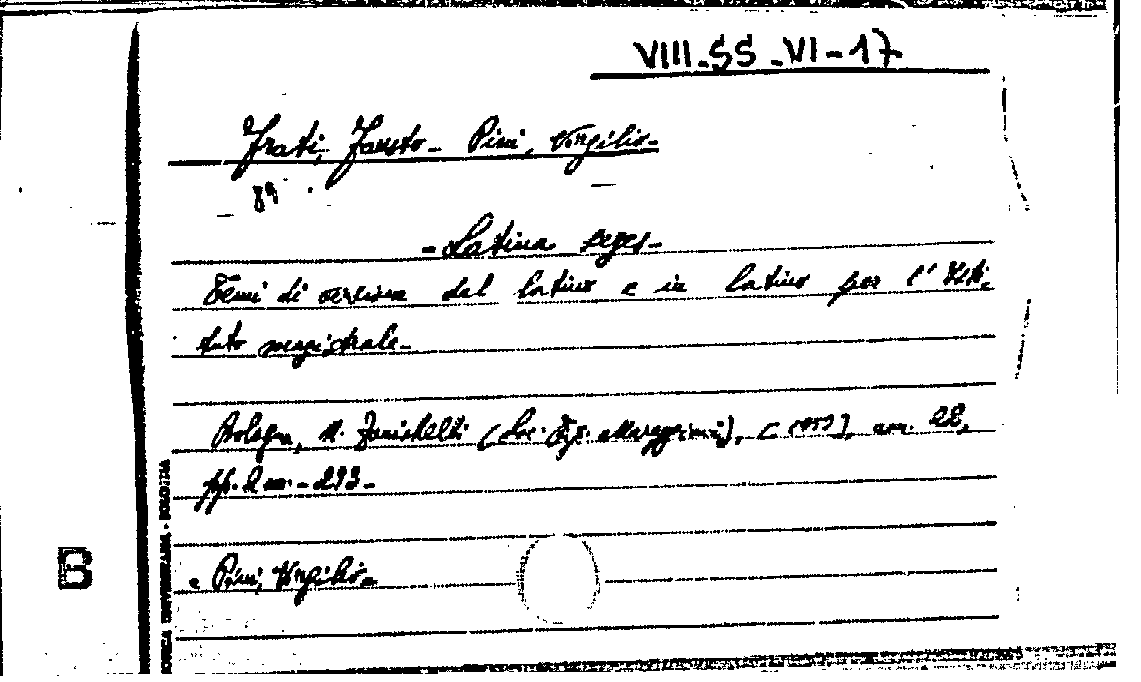 VIII.SS.VI-17
Frati, Fausto - Pini, Virgilio -
89
- Latina seges -
Temi di versione dal latino e in latino per l'Isti.
tuto magistrale -
Bologna, N. Zanichelli (Soc. Tip. Mareggiani), [1953], cm. 22,
pp. 2 nn. - 293 -
- Pini, Virgilio -
B
BOLOGNA